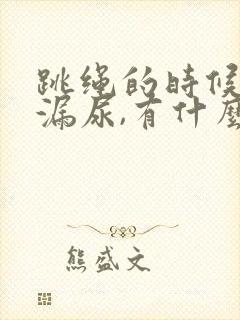 跳绳的时候
漏尿,有什麼
熊盛文